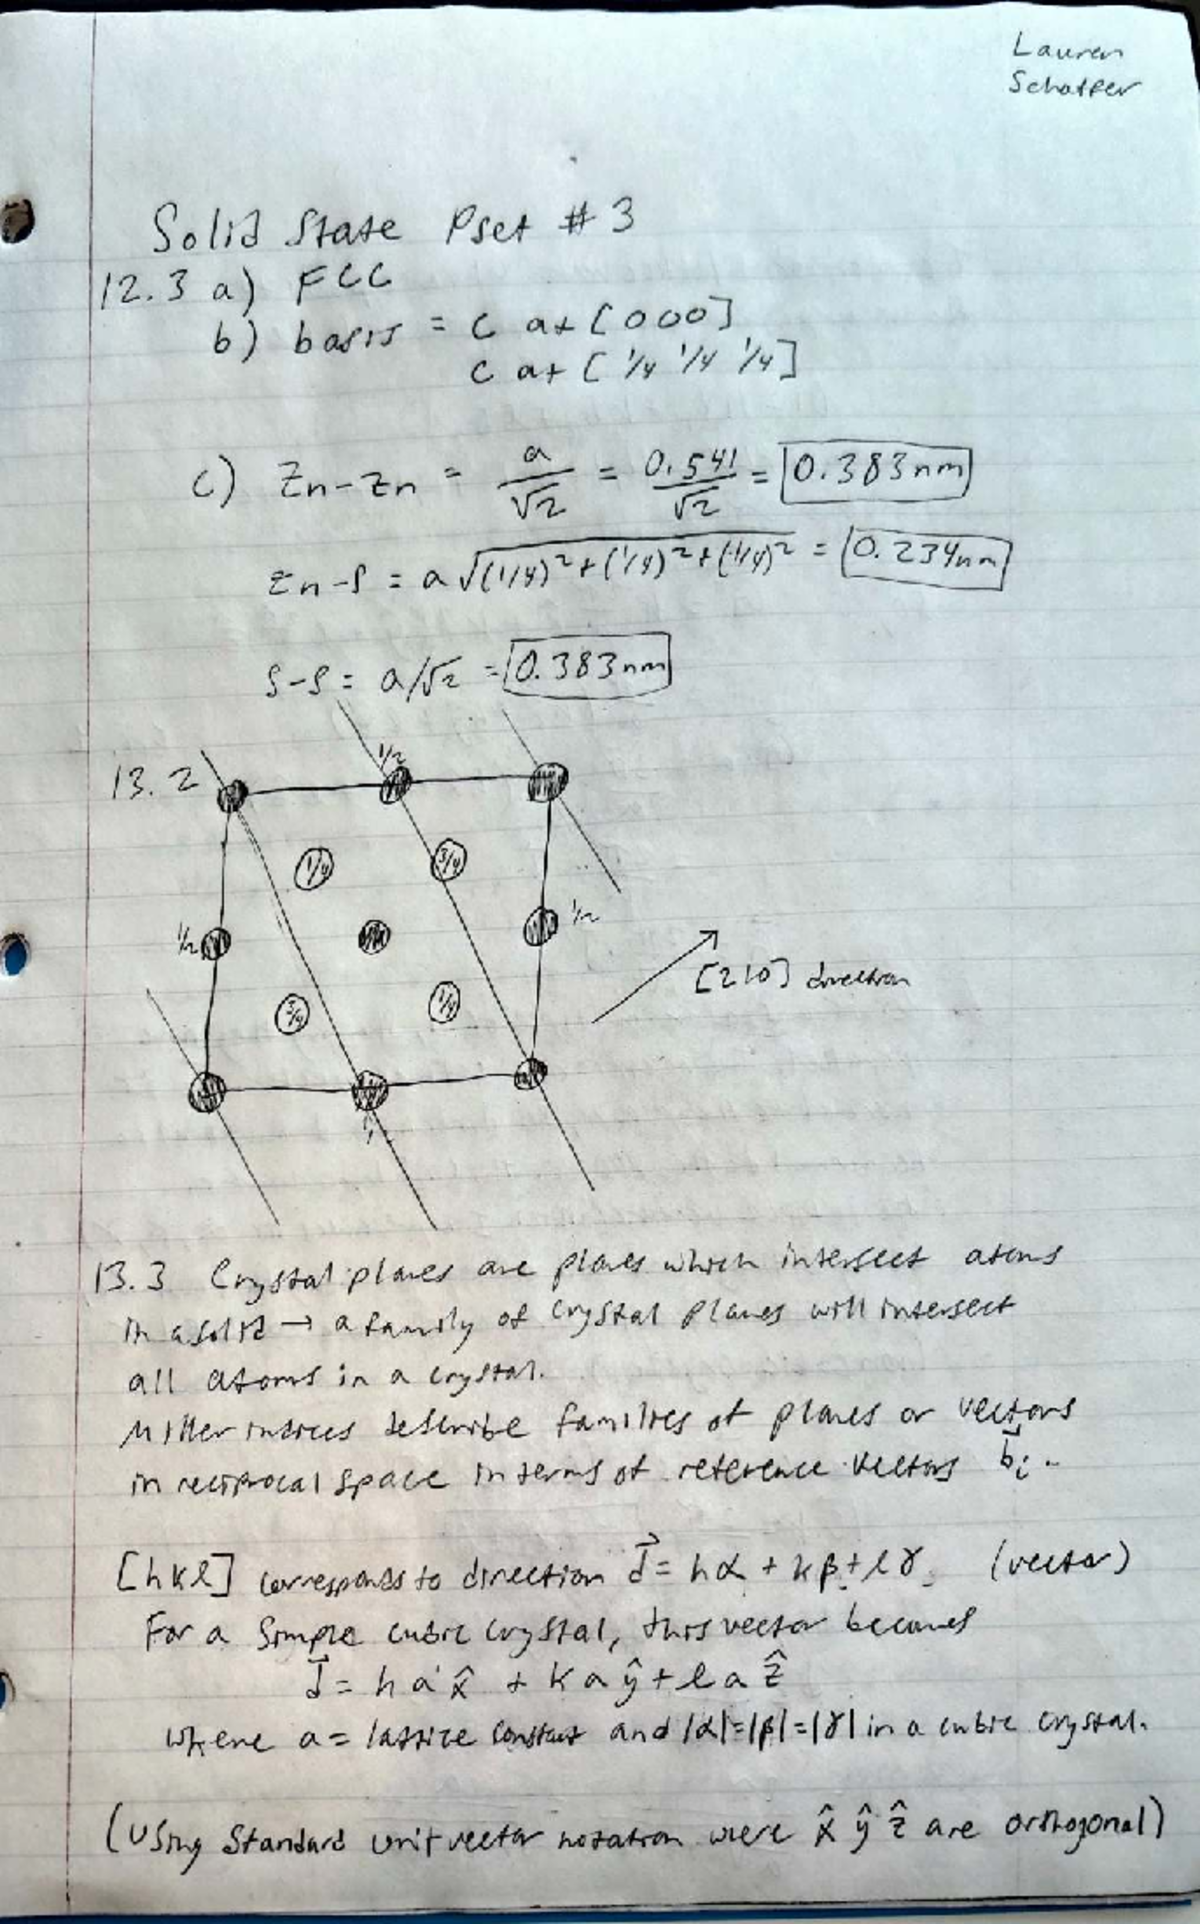 Lauren
Schaffer
Solid State Pset #3
12.3 a) FCC
b) basis = C at [000]
C at [1/4 1/4 1/4]
c) Zn-Zn = a/√2 = 0.541/√2 = 0.383nm
Zn-S = a√((1/4)²+(1/4)²+(1/4)²) = 0.234nm
S-S = a/√2 = 0.383nm
13.2
1/2
1/4
3/4
1/2
1/2
[210] direction
3/4
1/4
13.3 Crystal planes are planes which intersect atoms
in a solid → a family of crystal planes will intersect
all atoms in a crystal.
Miller indices describe families of planes or vectors
in reciprocal space in terms of reference vectors b⃗ᵢ.
[hkl] corresponds to direction d⃗ = hα + kβ + lγ (vector)
For a simple cubic crystal, this vector becomes
d⃗ = h a x̂ + k a ŷ + l a ẑ
where a = lattice constant and |α|=|β|=|γ| in a cubic crystal.
(Using standard unit vector notation were x̂ ŷ ẑ are orthogonal)